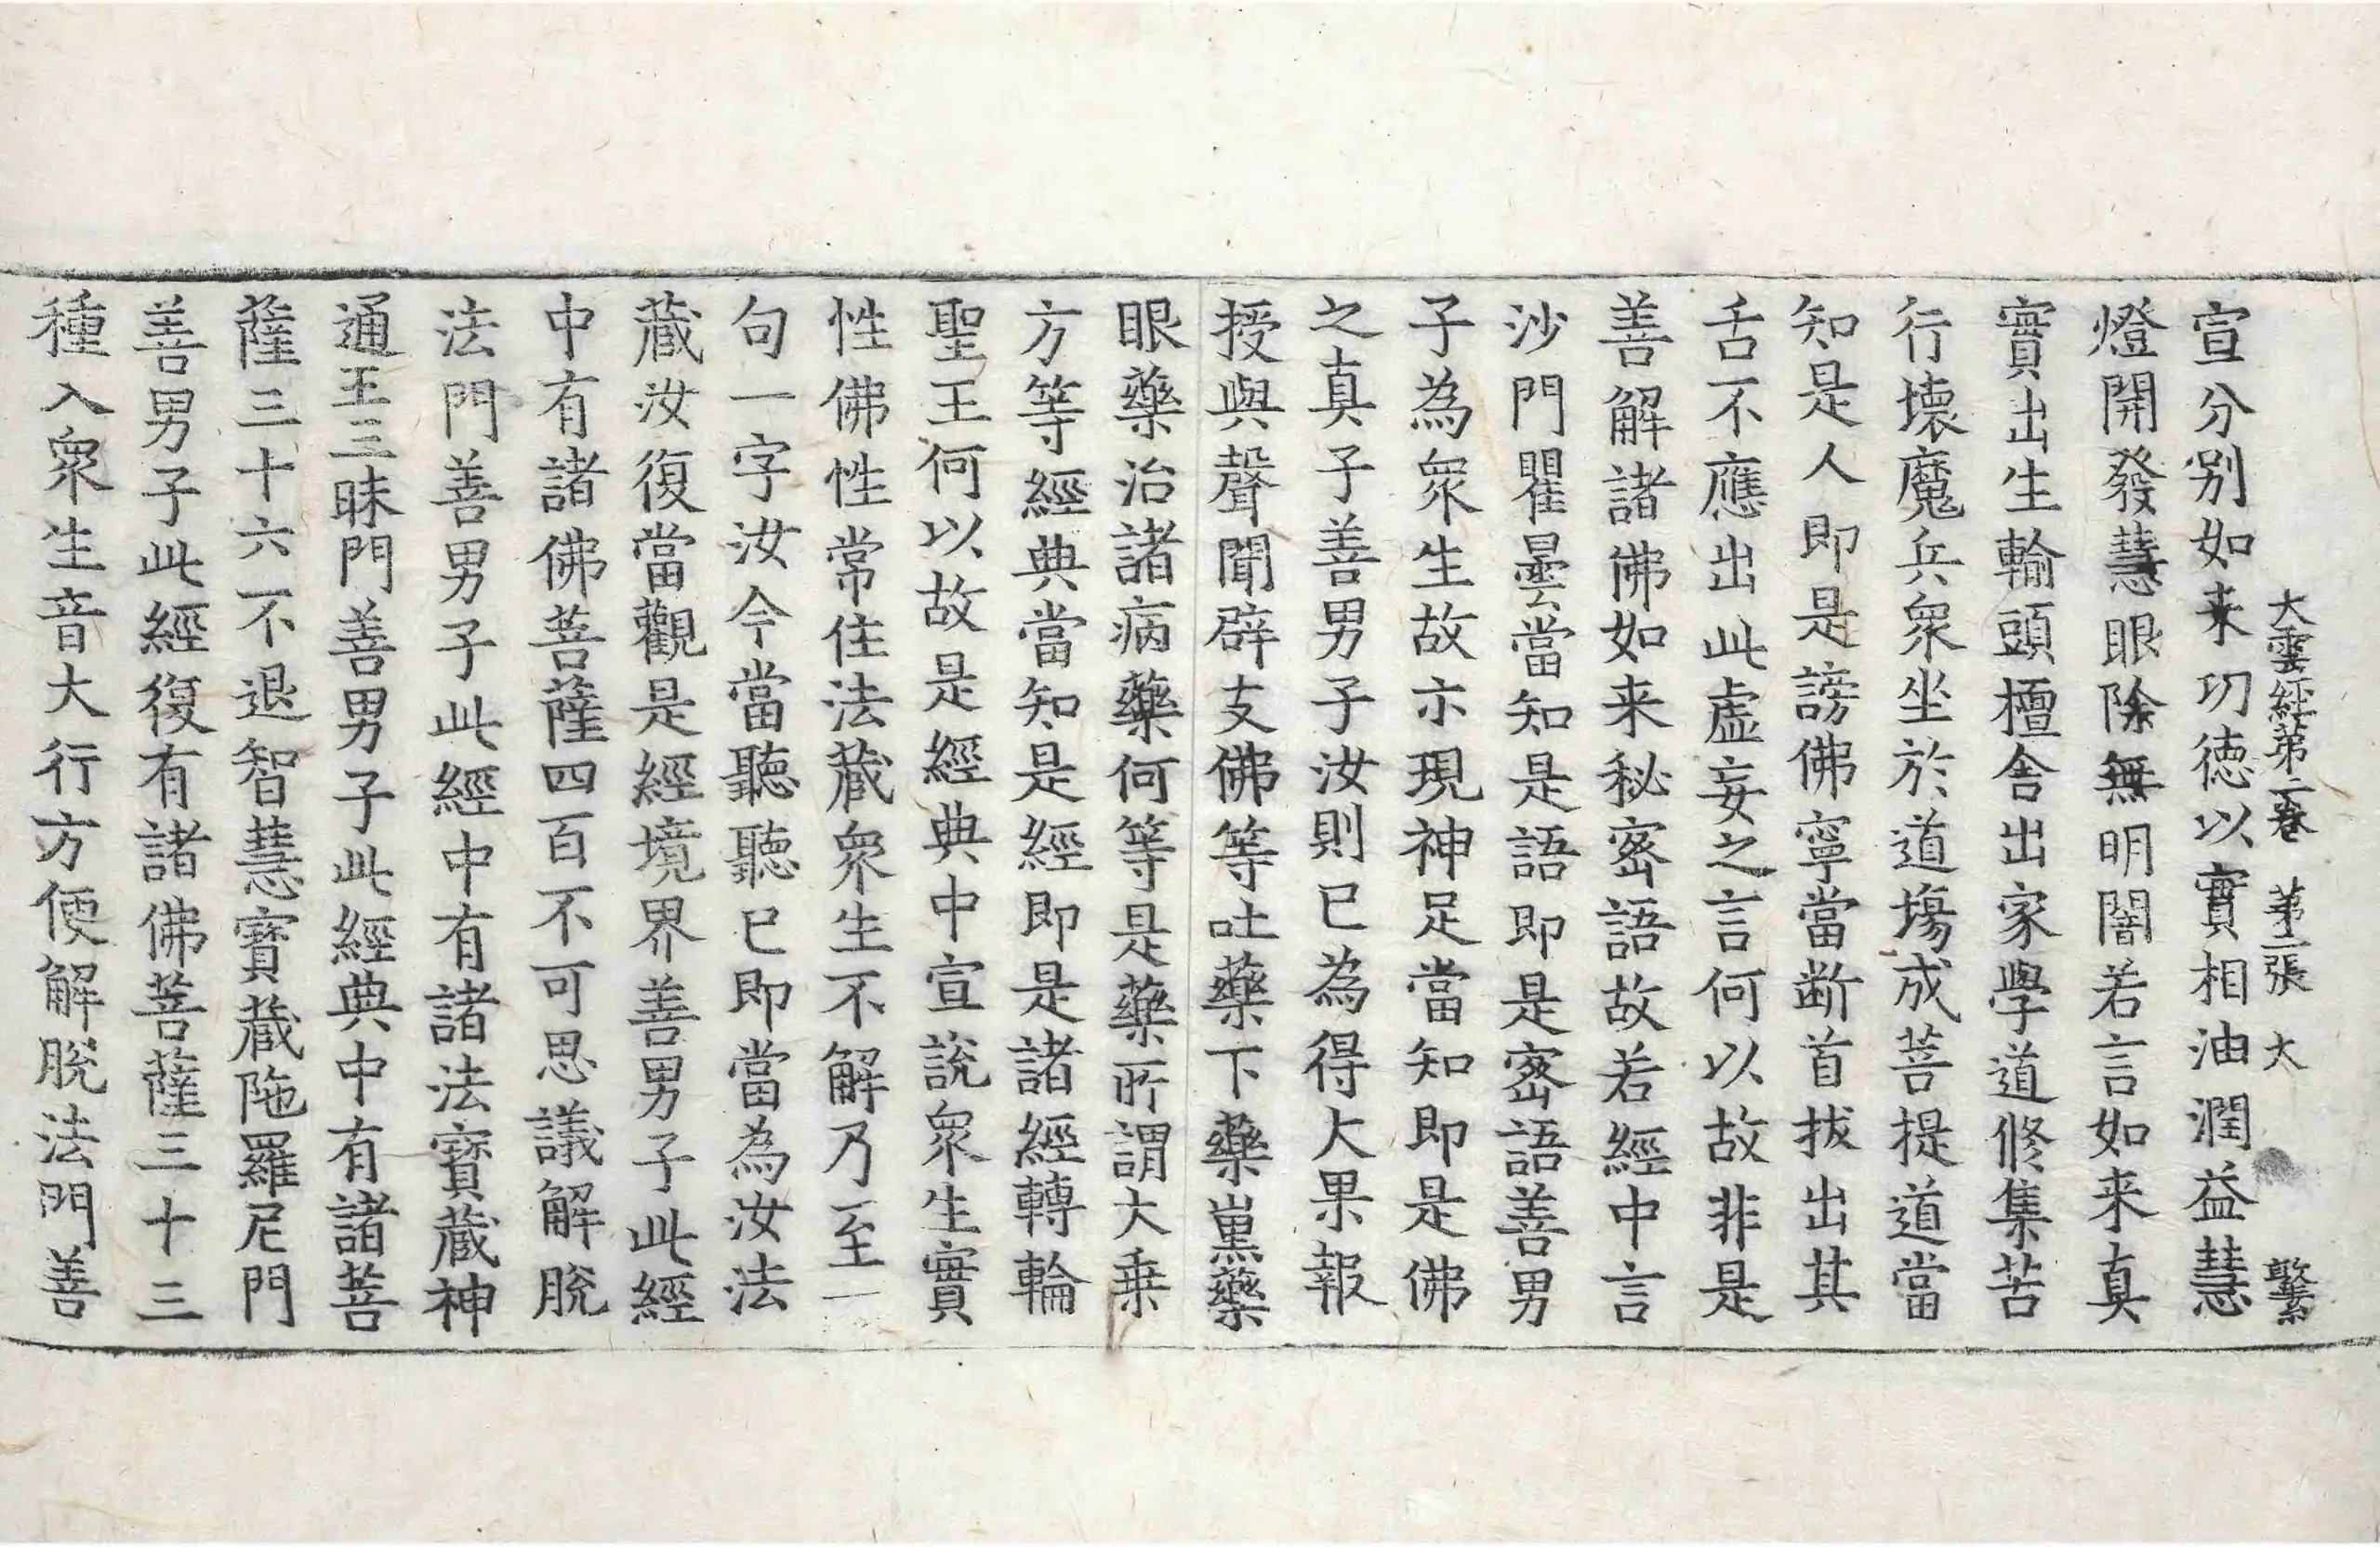 大雲經第二卷 第二張 大 繫
宣分別如来功徳以實相油潤益慧
燈開發慧眼除無明闇若言如来真
實出生輸頭檀舍出家學道修集苦
行壊魔兵衆坐於道塲成菩提道當
知是人即是謗佛寧當断首拔出其
舌不應出此虚妄之言何以故非是
善解諸佛如来秘宻語故若經中言
沙門瞿曇當知是語即是宻語善男
子為衆生故示現神足當知即是佛
之真子善男子汝則已為得大果報
授與聲聞辟支佛等吐藥下藥熏藥
眼藥治諸病藥何等是藥所謂大乗
方等經典當知是經即是諸經轉輪
聖王何以故是經典中宣説衆生實
性佛性常住法蔵衆生不解乃至一
句一字汝今當聽聽已即當為汝法
蔵汝復當觀是經境界善男子此經
中有諸佛菩薩四百不可思議解脫
法門善男子此經中有諸法寶蔵神
通王三昧門善男子此經典中有諸菩
薩三十六不退智慧寶蔵陁羅尼門
善男子此經復有諸佛菩薩三十三
種入衆生音大行方便解脫法門善